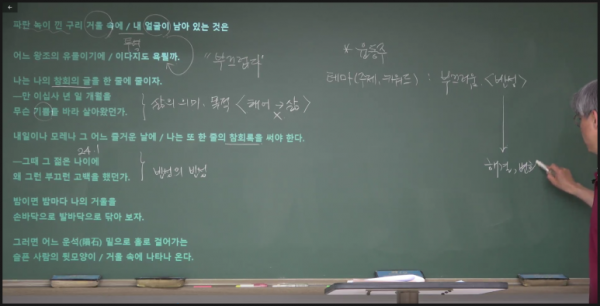 파란 녹이 낀 구리 거울 속에 / 내 얼굴이 남아 있는 것은
어느 왕조의 유물이기에 / 이다지도 욕될까.
"부끄럽다"
나는 나의 참회의 글을 한 줄에 줄이자.
—만 이십사 년 일 개월을
무슨 기쁨을 바라 살아왔던가.
삶의 의미, 목적 < 해어 → 삶 >
×
내일이나 모레나 그 어느 즐거운 날에 / 나는 또 한 줄의 참회록을 써야 한다.
24!
—그때 그 젊은 나이에
왜 그런 부끄런 고백을 했던가.
반성의 반성
밤이면 밤마다 나의 거울을
손바닥으로 발바닥으로 닦아 보자.
그러면 어느 운석(隕石) 밑으로 홀로 걸어가는
슬픈 사람의 뒷모양이 / 거울 속에 나타나 온다.
* 윤동주
테마(주제, 키워드) : 부끄러움 <반성>
해결, 변화